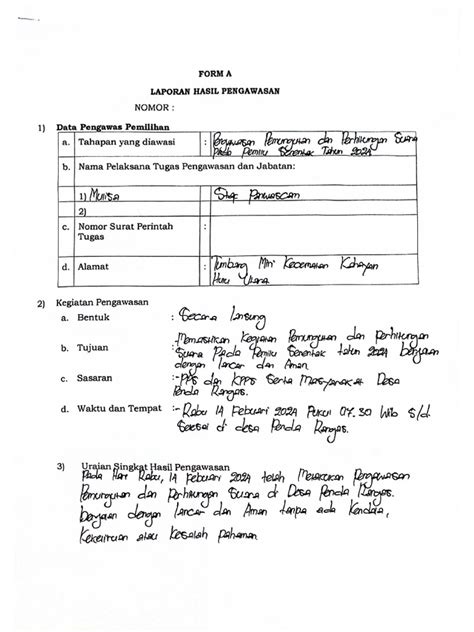 FORM A
LAPORAN HASIL PENGAWASAN
NOMOR :
1) Data Pengawas Pemilihan
a. Tahapan yang diawasi : Pengawasan Pemungutan dan Perhitungan Suara
Pada Pemilu Serentak Tahun 2024
b. Nama Pelaksana Tugas Pengawasan dan Jabatan:
1) Munisa Staf Panwascam
2)
c. Nomor Surat Perintah
Tugas :
d. Alamat : Tumbang Miri Kecematan Kahayan
Hulu Utara
2) Kegiatan Pengawasan
a. Bentuk : Secara Lansung
b. Tujuan : Memastikan Kegiatan Pemungutan dan Perhitungan
Suara Pada Pemilu Serentak tahun 2024 berjalan
dengan lancar dan Aman.
c. Sasaran :- PPS dan KPPS Serta Masyarakat Desa
Penda Rangas.
d. Waktu dan Tempat :- Rabu 14 Febuari 2024 Pukul 07.30 Wib s/d
Selesai di desa Penda Rangas.
3) Uraian Singkat Hasil Pengawasan
Pada Hari Rabu, 14 Febuari 2024 telah Melakukan Pengawasan
Pemungutan dan Perhitungan Suara di Desa Penda Rangas.
berjalan dengan lancar dan Aman tanpa ada Kendala,
Kekeliruan atau Kesalah pahaman.